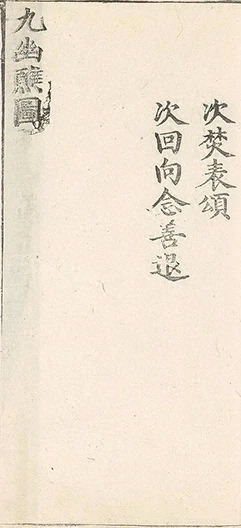 次焚表頌
次回向念善退
九幽醮圖